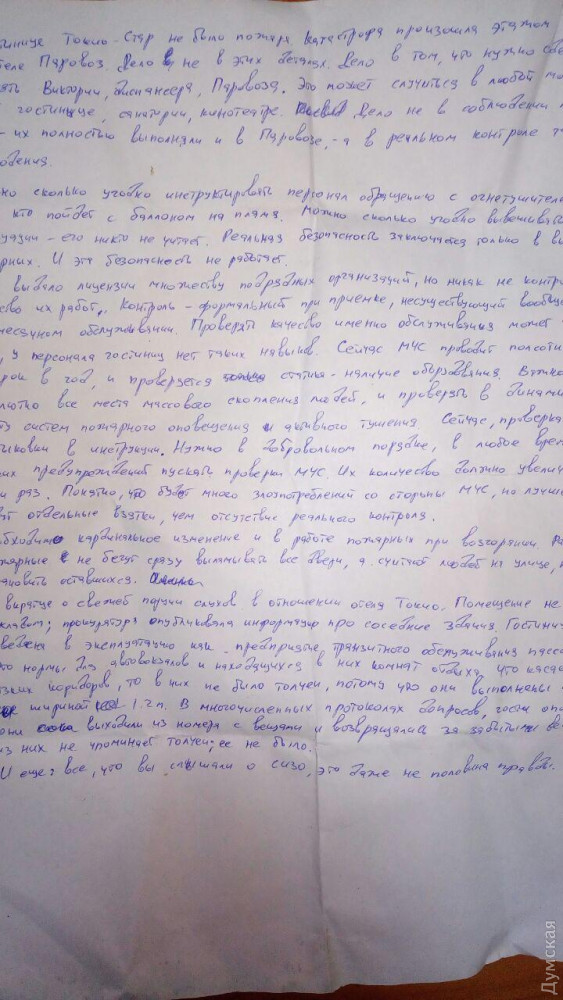 тинице Токио-Стар не было пожара катастрофа произошла этажом
теле Паровоз. Дело не в этих деталях. Дело в том, что нужно
Виктории, диспансера, Паровоза. Это может случиться в любой
гостинице, санатории, кинотеатре. Дело не в соблюдении
- их полностью выполняли и в Паровозе, - а в реальном контроле
юдения.
но сколько угодно инструктировать персонал обращению с огнетушител
кто пойдет с баллоном на пламя. Можно сколько угодно вывешивать
уации - его никто не читает. Реальная безопасность заключается только в
рных. И эта безопасность не работает.
выдало лицензии множеству подрядных организаций, но никак не контр
ство их работ. Контроль - формальный при приемке, несуществующий вообще
месячном обслуживании. Проверять качество именно обслуживания может
, у персонала гостиниц нет таких навыков. Сейчас МЧС проводит полсотни
рок в год, и проверяется статика - наличие оборудования. Нужно
лютно все места массового скопления людей, и проверять в динами
систем пожарного оповещения и активного тушения Сейчас, проверка
тыковки в инструкции. Нужно в добровольном порядке, в любое врем
ких предупреждений пускать проверки МЧС. Их количество должно увелич
и раз. Понятно, что будет много злоупотреблений со стороны МЧС, но лучше
ут отдельные взятки, чем отсутствие реального контроля.
обходимо кардинальное изменение и в работе пожарных при возгорании.
жарные не бегут сразу выламывать все двери, а считают людей на улице,
ановить оставшихся.
вкратце о свежей порции слухов в отношении отеля Токио. Помещение не
складом; прокуратура опубликовала информацию про соседние здания. Гостиниц
ведена в эксплуатацию как предприятие транзитного обслуживания пасса
ко нормы для автовокзалов и находящихся в них комнат отдыха, что касае
узких коридоров, то в них не было толчеи, потому что они выполнены
шириной 1.2 м. В многочисленных протоколах допросов, гости
они выходили из номера с вещами и возвращались за забытыми ве
из них не упоминает толчеи; ее не было.
И еще: все, что вы слышали о сизо, это даже не половина правды.
Думская